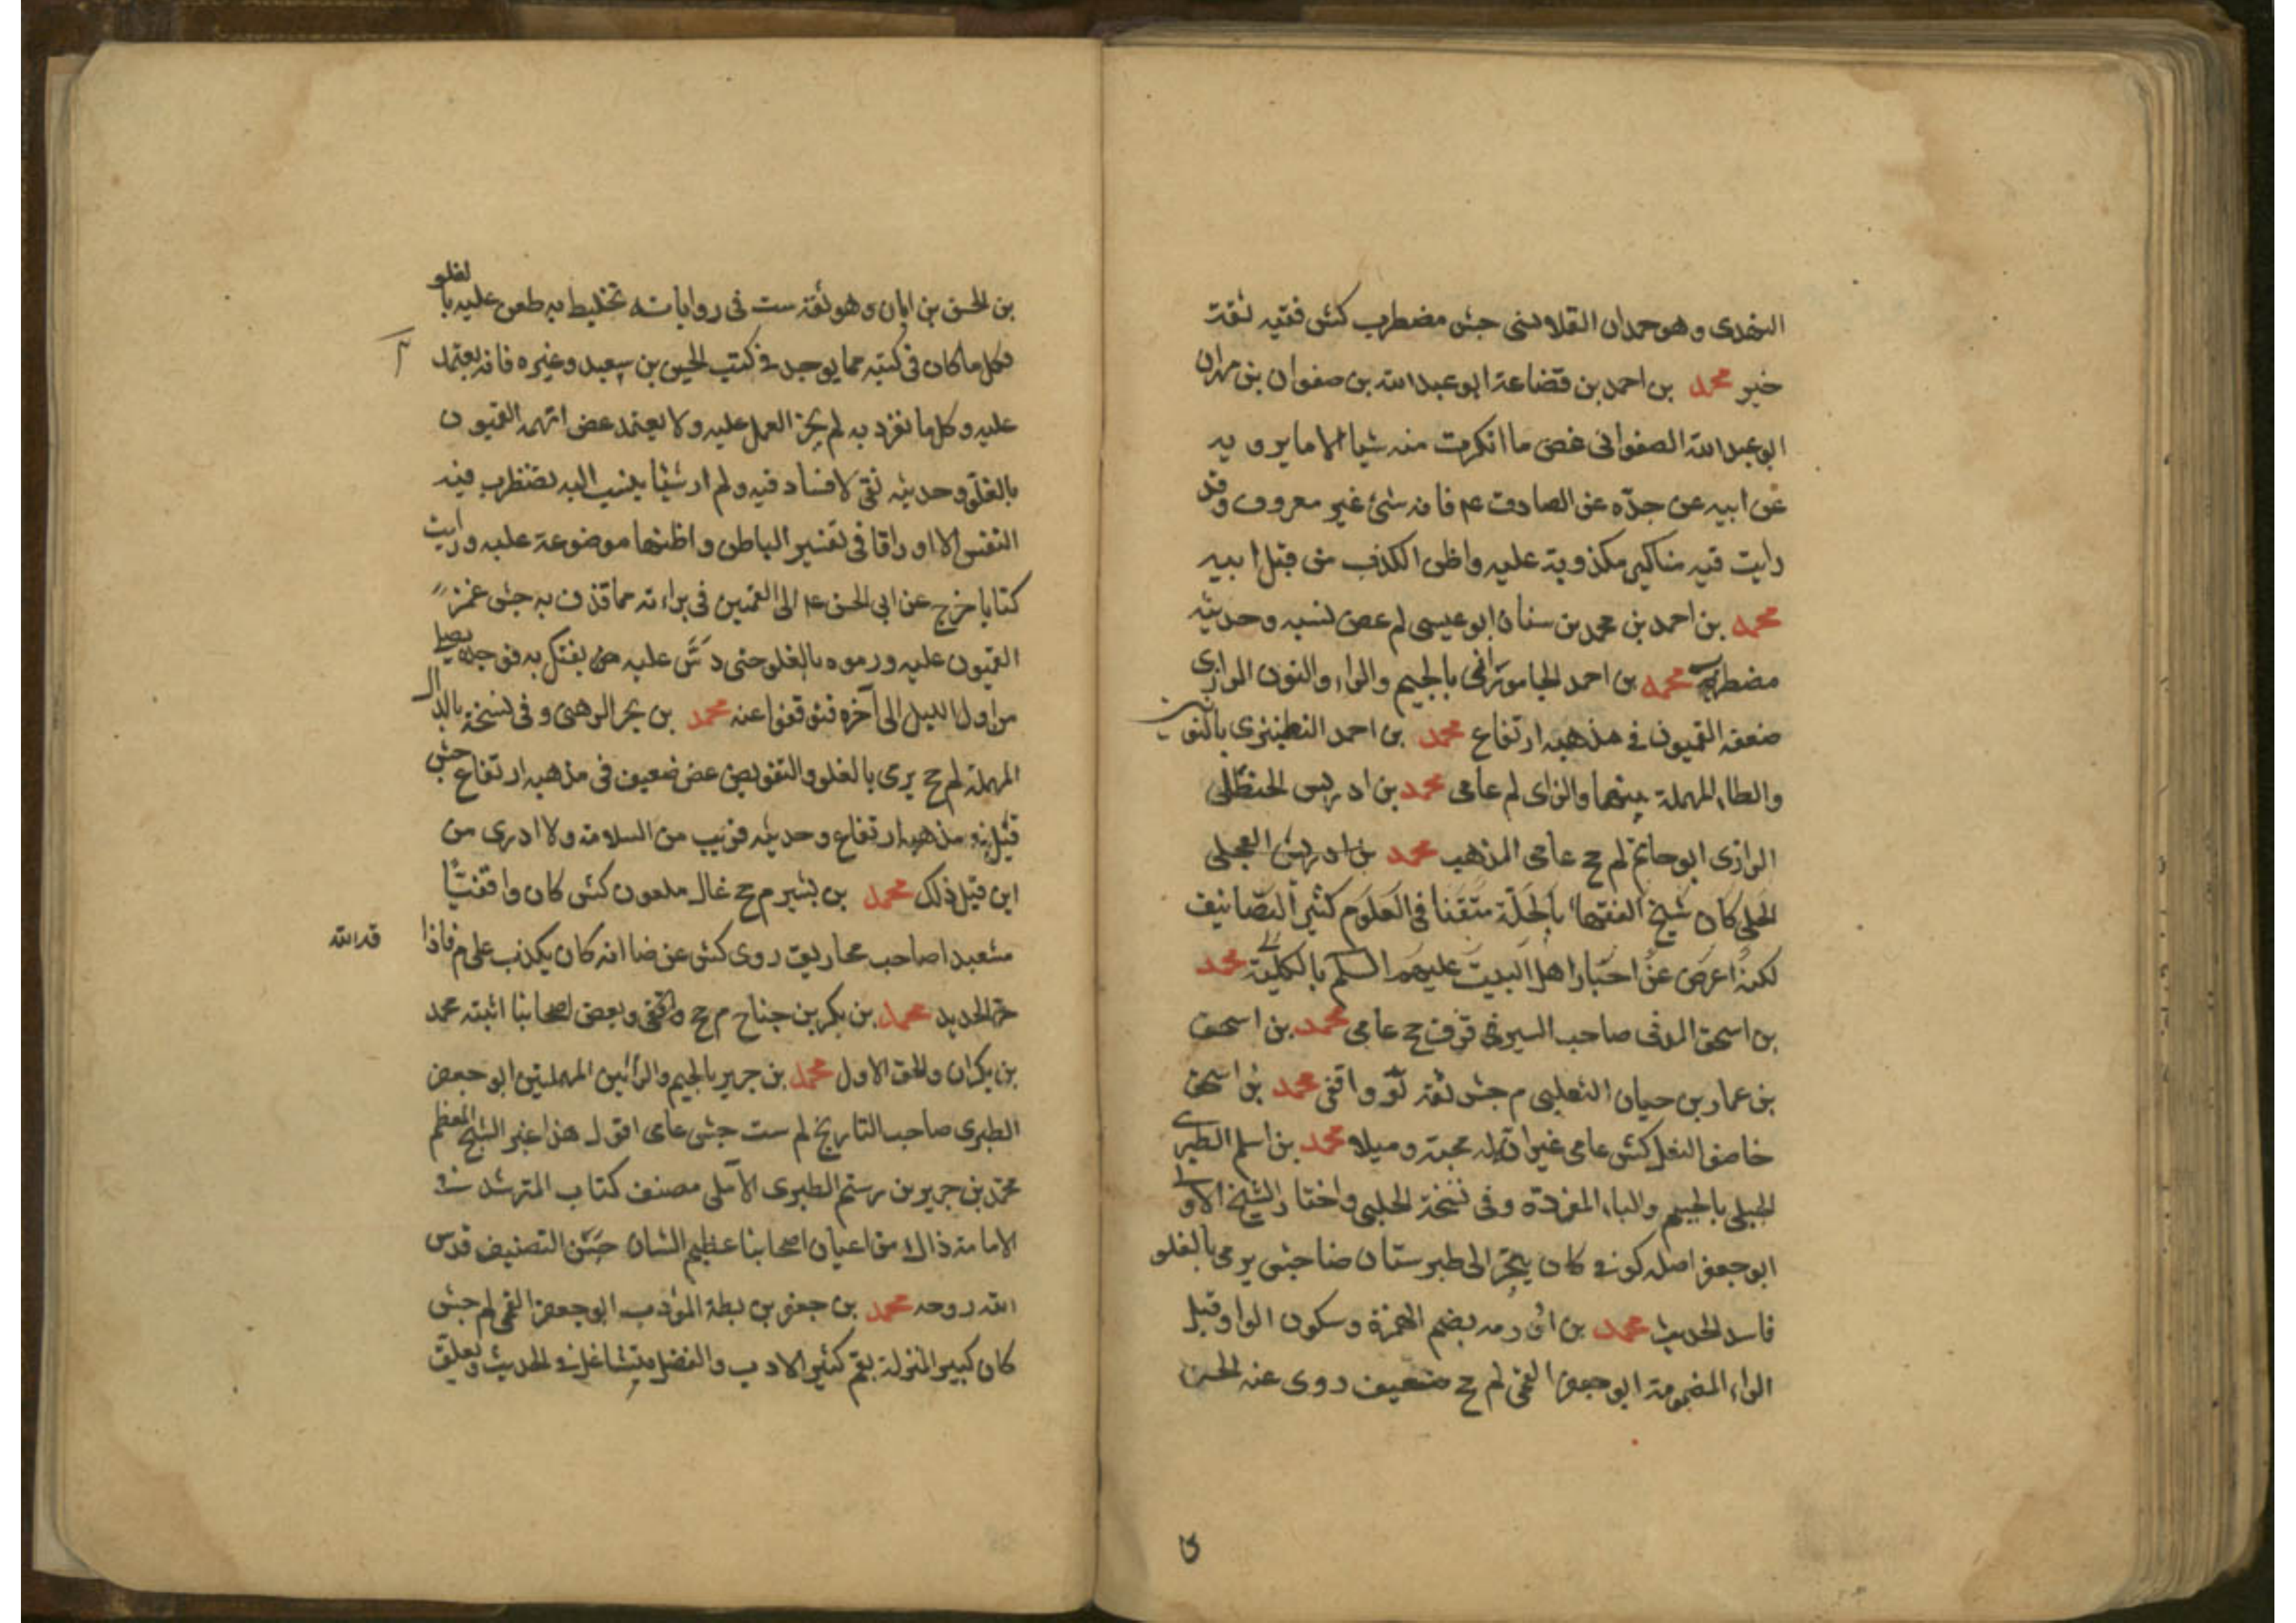 النهدى وهو حمدان القلانسى جش مضطرب كش فقيه ثقة
خير محمد بن احمد بن قضاعة ابو عبد الله بن صفوان بن مهران
ابو عبد الله الصفوانى غض ما انكرت منه شيا الا ما يرويه
عن ابيه عن جدّه عن الصادق عم فانه شئ غير معروف وقد
رايت فيه مناكير مكذوبة عليه واظن الكذب من قبل ابيه
محمد بن احمد بن محمد بن سنان ابو عيسى لم غض نسبه وحديثه
مضطرب محمد بن احمد الجامورانى بالجيم والراء والنون الرازى
ضعفه القميون فى مذهبه ارتفاع محمد بن احمد النطنزى بالنونين
والطاء المهملة بينهما والزاى لم عامى محمد بن ادريس الحنظلى
الرازى ابو حاتم لم جخ عامى المذهب محمد بن ادريس العجلى
الحلى كان شيخ الفقهاء بالحلّة متقنا فى العلوم كثير التصانيف
لكنه اعرض عن اخبار اهل البيت عليهم السلم بالكلية محمد
بن اسحق المدنى صاحب السير قر ق جخ عامى محمد بن اسحق
بن عمار بن حيان التغلبى م جش ثقة واقفى محمد بن اسحق
خاصف النعل كش عامى غير ان له محبة وميلا محمد بن اسلم الطبرى
الجبلى بالجيم والباء المفردة وفى نسخة الحلبى واختار الشيخ الاول
ابو جعفر اصله كوفى كان يتجر الى طبرستان ضا جش يرمى بالغلو
فاسد الحديث محمد بن اورمه بضم الهمزة وسكون الواو قبل
الراء المضمومة ابو جعفر القمى لم جخ ضعيف روى عنه الحسين
بن الحسن بن ابان وهو ثقة ست فى رواياته تخليط به طعن عليه بالغلو
فكل ما كان فى كتبه مما يوجد فى كتب الحسين بن سعيد وغيره فانه يعتمد
عليه وكل ما تفرد به لم يجز العمل عليه ولا يعتمد غض اتهمه القميون
بالغلوّ وحديثه نقى لا فساد فيه ولم ار شيئا ينسب اليه تضطرب فيه
النفس الا اوراقا فى تفسير الباطن واظنها موضوعة عليه ورايت
كتابا خرج عن ابى الحسن عم الى القميين فى براءته مما قذف به جش غمز
القميون عليه ورموه بالغلو حتى دسّ عليه من يفتك به فوجده يصلى
من اول الليل الى آخره فتوقفوا عنه محمد بن بحر الرهنى وفى نسخة بالدال
المهملة لم جخ يرمى بالغلو والتفويض غض ضعيف فى مذهبه ارتفاع جش
قيل فى مذهبه ارتفاع وحديثه قريب من السلامة ولا ادرى من
اين قيل ذلك محمد بن بشير م جخ غال ملعون كش كان واقفيّا
مشعبدا صاحب مخاريق روى كش عن ضا انه كان يكذب على م فاذاقه الله
حر الحديد محمد بن بكر بن جناح م جخ واقفى وبعض اصحابنا اثبته محمد
بن بكران والحق الاول محمد بن جرير بالجيم والرائين المهملتين ابو جعفر
الطبرى صاحب التاريخ لم ست جش عامى اقول هذا غير الشيخ المعظم
محمد بن جرير بن رستم الطبرى الآملى مصنف كتاب المترشد فى
الامامة ذاك من اعيان اصحابنا عظيم الشان حسن التصنيف قدس
الله روحه محمد بن جعفر بن بطة المؤدب ابو جعفر القمى لم جش
كان كبير المنزلة بقم كثير الادب والفضل يتشاغل فى الحديث وتعلق